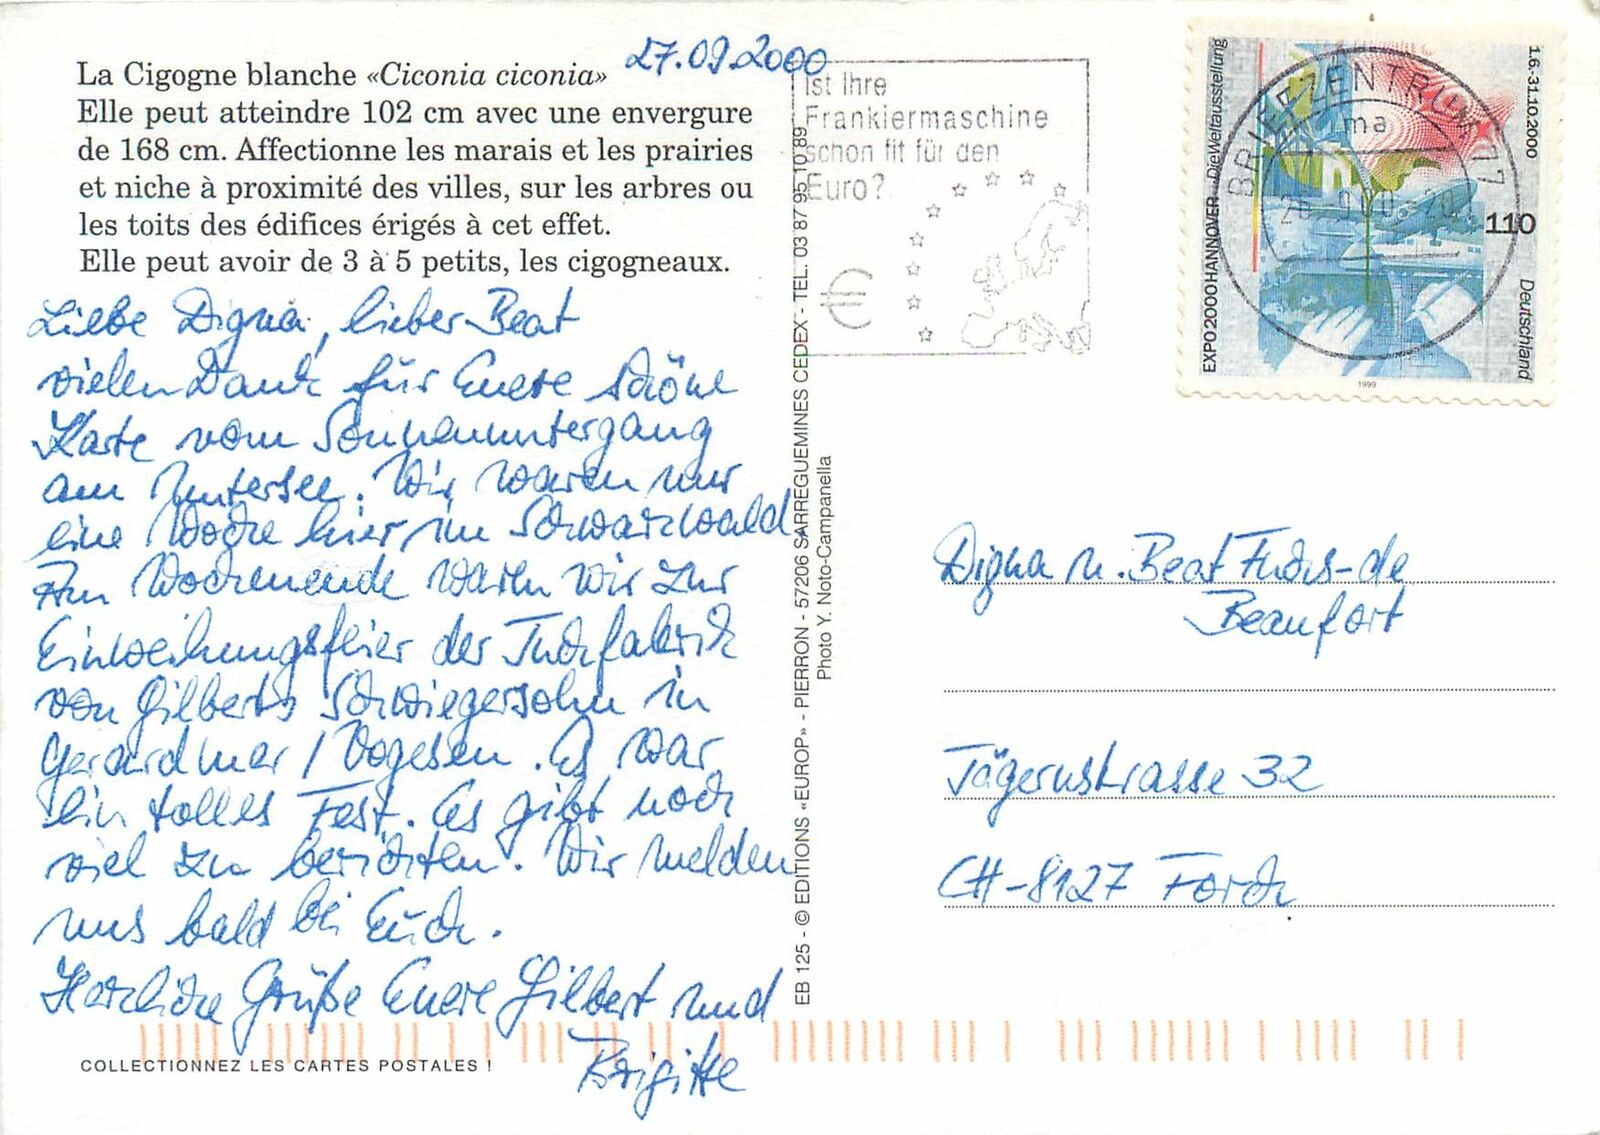 27.09.2000
La Cigogne blanche «Ciconia ciconia»
Elle peut atteindre 102 cm avec une envergure
de 168 cm. Affectionne les marais et les prairies
et niche à proximité des villes, sur les arbres ou
les toits des édifices érigés à cet effet.
Elle peut avoir de 3 à 5 petits, les cigogneaux.
Liebe Digna, lieber Beat
vielen Dank für Euere schöne
Karte vom Sonnenuntergang
am Untersee. Wir waren nur
eine Woche hier im Schwarzwald
Am Wochenende waren wir zur
Einweihungsfeier der Tuchfabrik
von Gilberts Schwiegersohn in
Gerardmer / Vogesen. Es war
ein tolles Fest. Es gibt noch
viel zu berichten. Wir melden
uns bald bei Euch.
Herzliche Grüße Euere Gilbert und
Brigitte
COLLECTIONNEZ LES CARTES POSTALES !
EB 125 - © EDITIONS «EUROP» - PIERRON - 57206 SARREGUEMINES CEDEX - TEL. 03 87 95 10 89
Photo Y. Noto-Campanella
Ist Ihre
Frankiermaschine
schon fit für den
Euro?
€
BRIEFZENTRUM 77
ma
EXPO 2000 HANNOVER · Die Weltausstellung
1.6.-31.10.2000
110
Deutschland
1999
Digna u. Beat Fuchs-de
Beaufort
Jägernstrasse 32
CH-8127 Forch